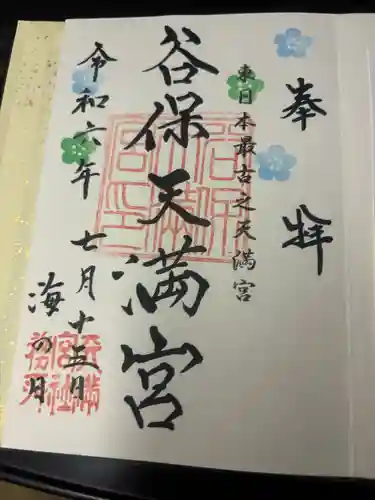 奉拝
東日本最古之天満宮
谷保天満宮
令和六年 七月十五日
海の日